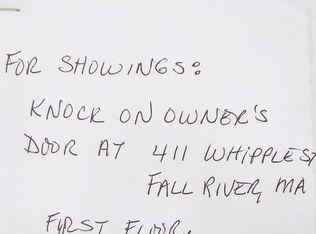 FOR SHOWINGS:
KNOCK ON OWNER'S
DOOR AT 411 WHIPPLE ST
FALL RIVER, MA
FIRST FLOOR.